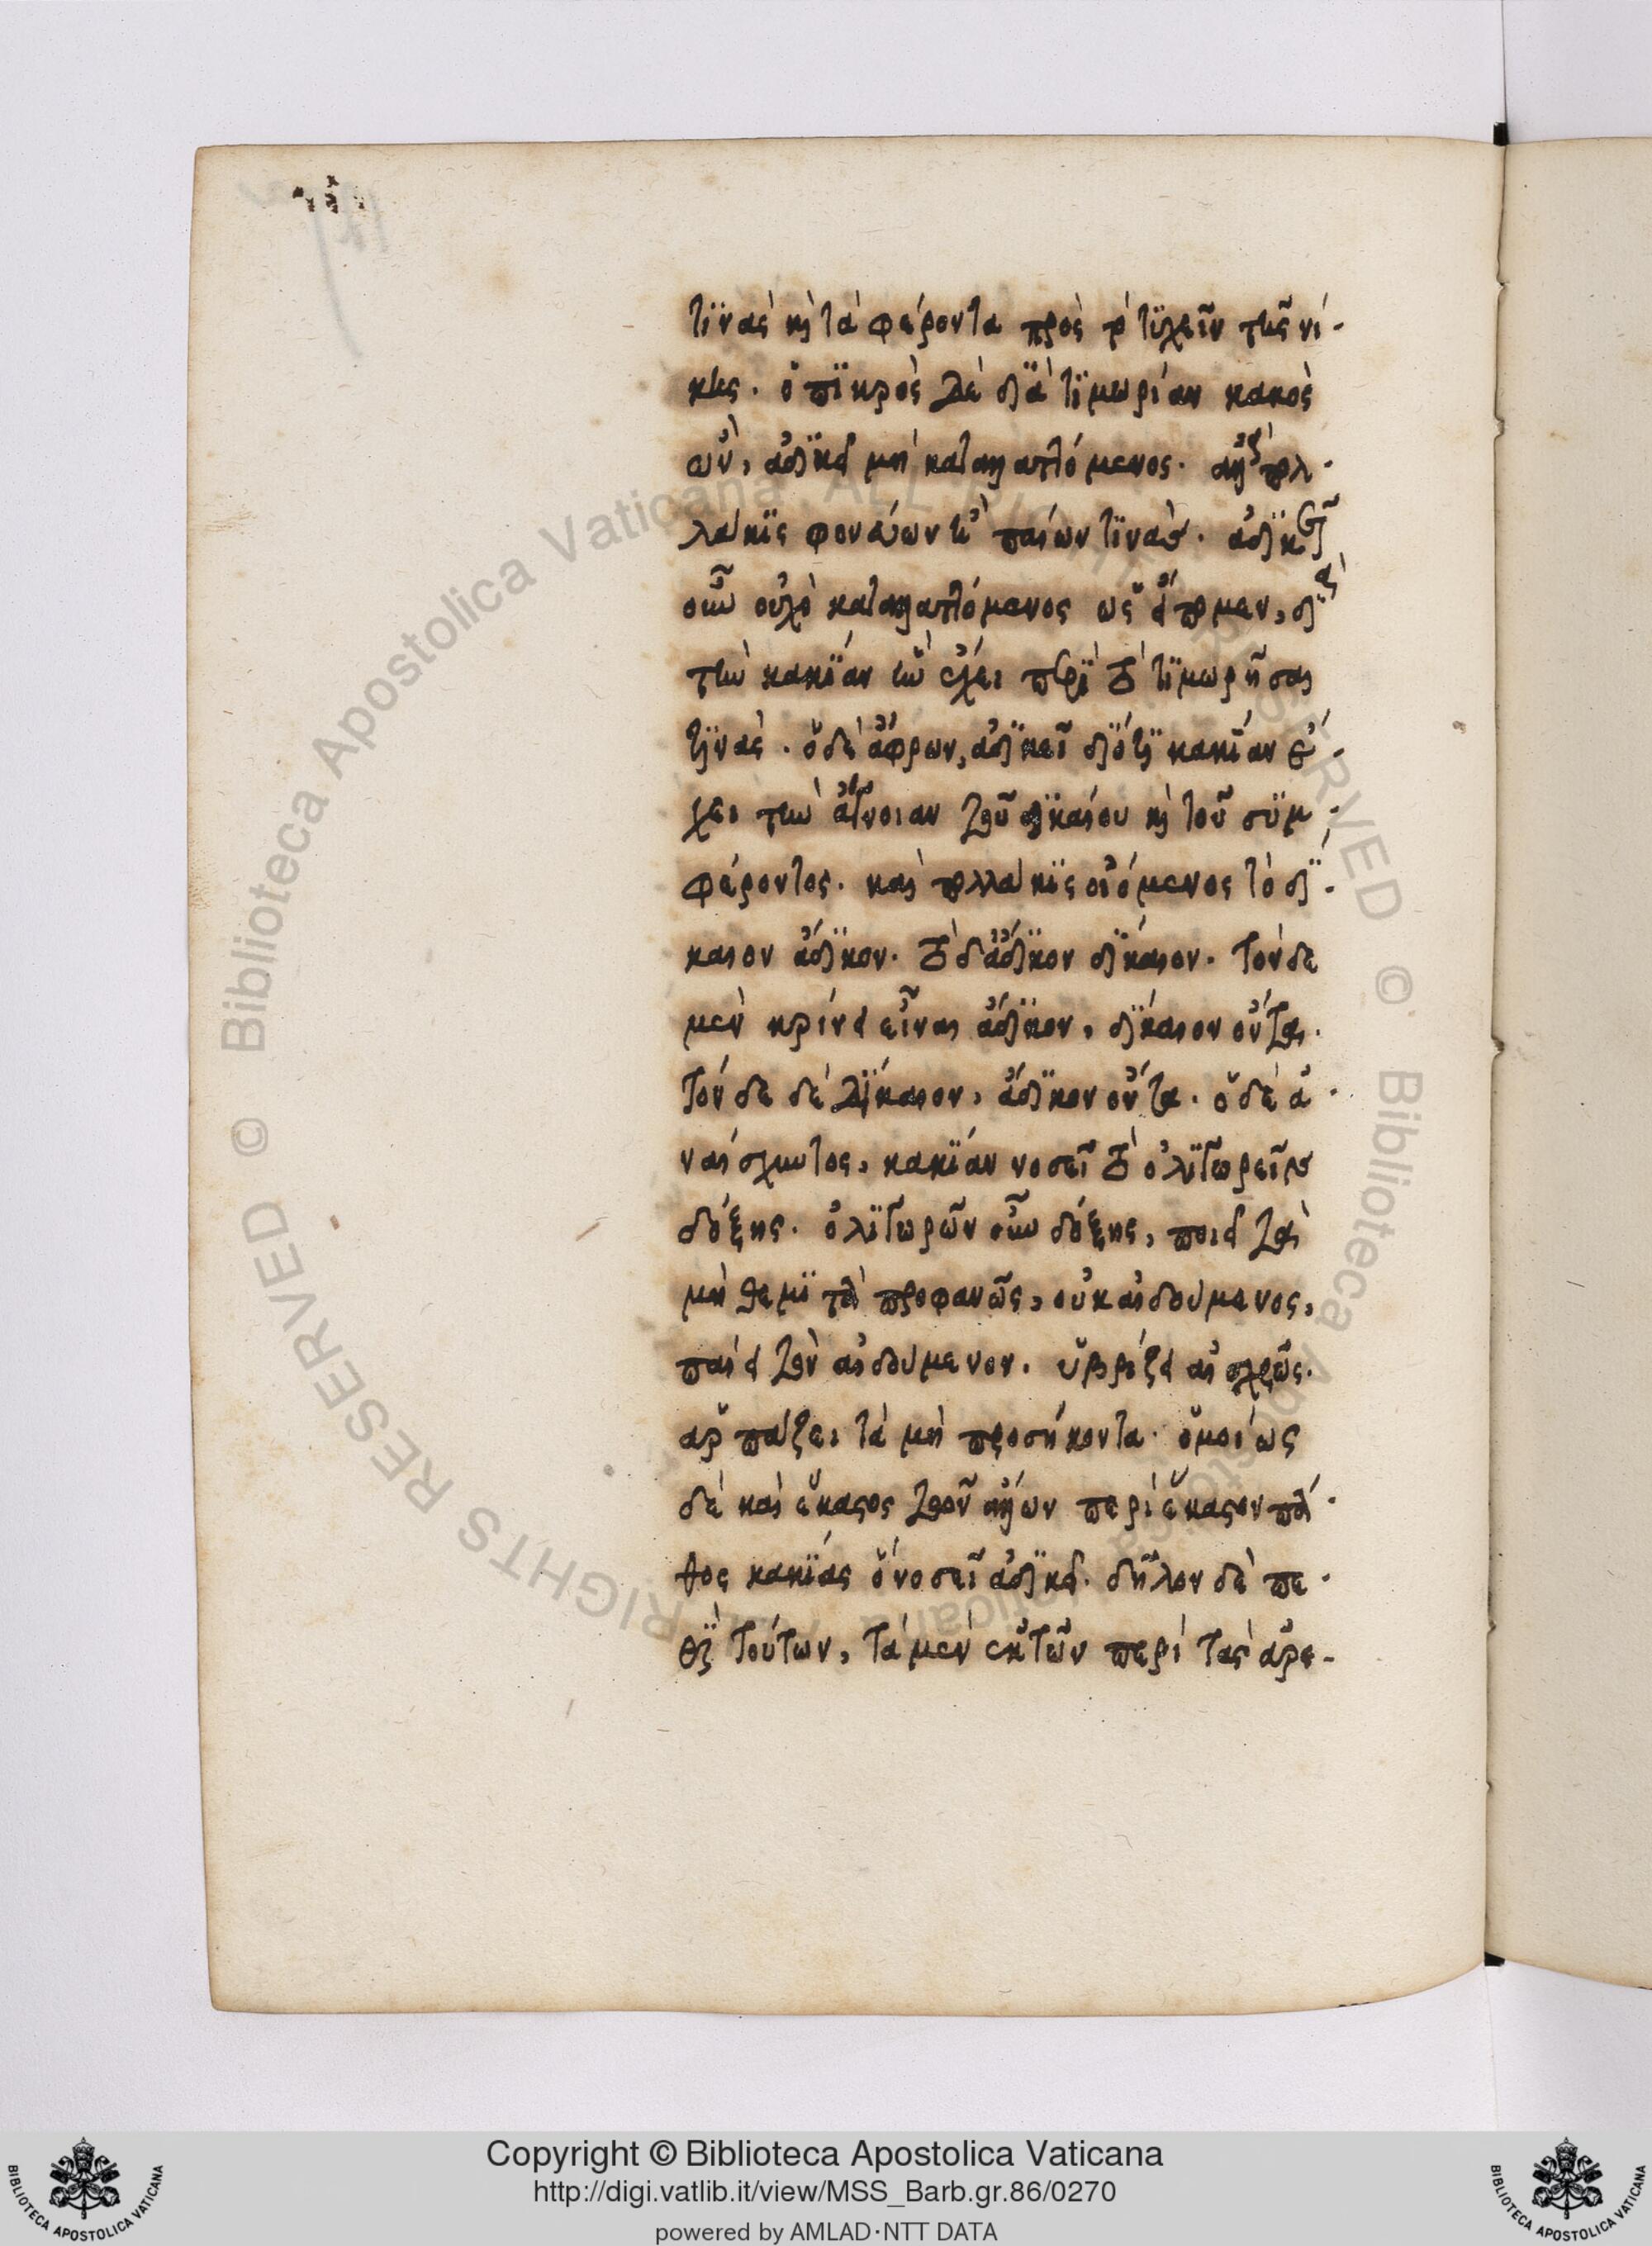 τινὰς καὶ τὰ φέροντα πρὸς τὸ τυχεῖν τῆς νί-
κης. ὁ πικρὸς δὲ διὰ τιμωρίαν κακὸς
ὢν, ἀδικεῖ μὴ καταλλαττόμενος. ἀλλὰ πολ-
λάκις φονεύων ἢ παίων τινάς. ἀδικεῖ
οὖν οὐχὸ καταλλαττόμενος ὡς εἴπομεν, διὰ
τὴν κακίαν ἣν ἔχει περὶ τὸ τιμωρῆσαι
τινάς. ὁ δὲ ἄφρων, ἀδικεῖ διότι κακίαν ἔ-
χει τὴν ἄγνοιαν τοῦ δικαίου καὶ τοῦ συμ-
φέροντος. καὶ πολλάκις οἰόμενος τὸ δί-
καιον ἄδικον. τὸ δ' ἄδικον δίκαιον. τόνδε
μὲν κρίνει εἶναι ἄδικον, δίκαιον ὄντα.
τόνδε δὲ δίκαιον, ἄδικον ὄντα. ὁ δὲ ἀ-
ναίσχυντος, κακίαν νοσεῖ τὸ ὀλιγωρεῖν
δόξης. ὀλιγωρῶν οὖν δόξης, ποιεῖ τὰ
μὴ θεμιτὰ προφανῶς, οὐκ αἰδούμενος,
παίει τὸν αἰδούμενον. ὑβρίζει αἰσχρῶς.
ἁρπάζει τὰ μὴ προσήκοντα. ὁμοίως
δὲ καὶ ἕκαστος τῶν ἄλλων περὶ ἕκαστον πά-
θος κακίας ὃ νοσεῖ ἀδικεῖ. δῆλον δὲ πε-
ρὶ τούτων, τὰ μὲν ἐκ τῶν περὶ τὰς ἀρε-
Copyright © Biblioteca Apostolica Vaticana
http://digi.vatlib.it/view/MSS_Barb.gr.86/0270
powered by AMLAD·NTT DATA